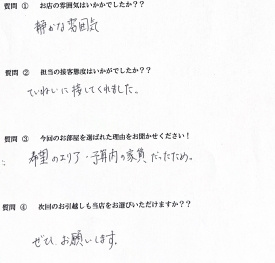 質問 ① お店の雰囲気はいかかでしたか？？
静かな雰囲気
質問 ② 担当の接客態度はいかがでしたか？？
ていねいに接してくれました。
質問 ③ 今回のお部屋を選ばれた理由をお聞かせください！
希望のエリア・予算内の家賃だったため。
質問 ④ 次回のお引越しも当店をお選びいただけますか？？
ぜひお願いします。